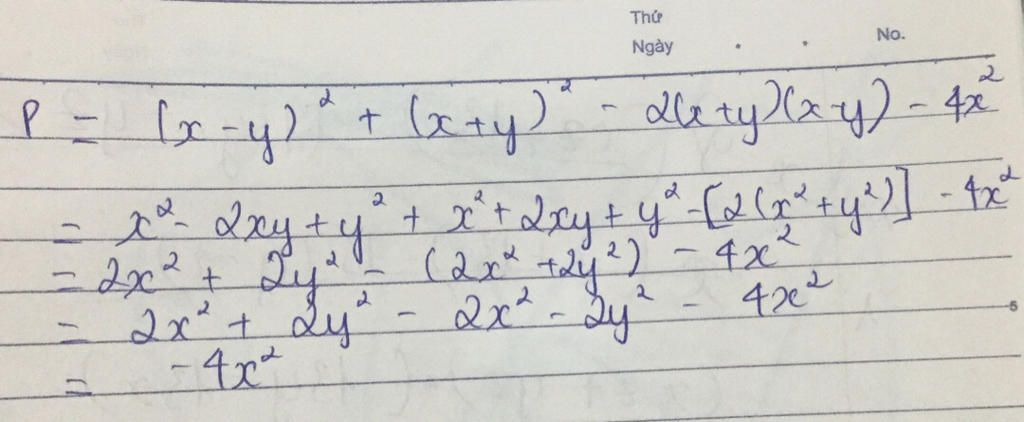 Thứ
Ngày . . No.
P = (x - y)² + (x + y)² - 2(x + y)(x - y) - 4x²
= x² - 2xy + y² + x² + 2xy + y² - [2(x² + y²)] - 4x²
= 2x² + 2y² - (2x² + 2y²) - 4x²
= 2x² + 2y² - 2x² - 2y² - 4x²
= -4x²